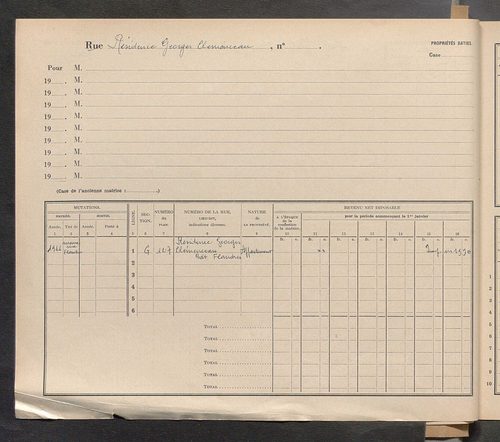 Rue Résidence Georges Clemenceau, n°
PROPRIÉTÉS BATIES
Case
Pour M.
19 M.
19 M.
19 M.
19 M.
19 M.
19 M.
19 M.
19 M.
19 M.
(Case de l'ancienne matrice : )
MUTATIONS. LIGNE. SECTION. NUMÉRO du PLAN. NUMÉRO DE LA RUE, LIEU-DIT, indications diverses. NATURE de LA PROPRIÉTÉ. REVENU NET IMPOSABLE
ENTRÉE. SORTIE. A L'ÉPOQUE de la confection de la matrice. pour la période commençant le 1er janvier
Année. Tiré de Année. Porté à
1 2 3 4 5 6 7 8 9 10 11 12 13 14 15 16
Fr. c. Fr. c. Fr. c. Fr. c. Fr. c. Fr. c. Fr. c.
1966 1 G 227 Résidence Georges Clemenceau Bât. Flandres Appartement
2
3
4
5
6
TOTAL
TOTAL
TOTAL
TOTAL
TOTAL
TOTAL